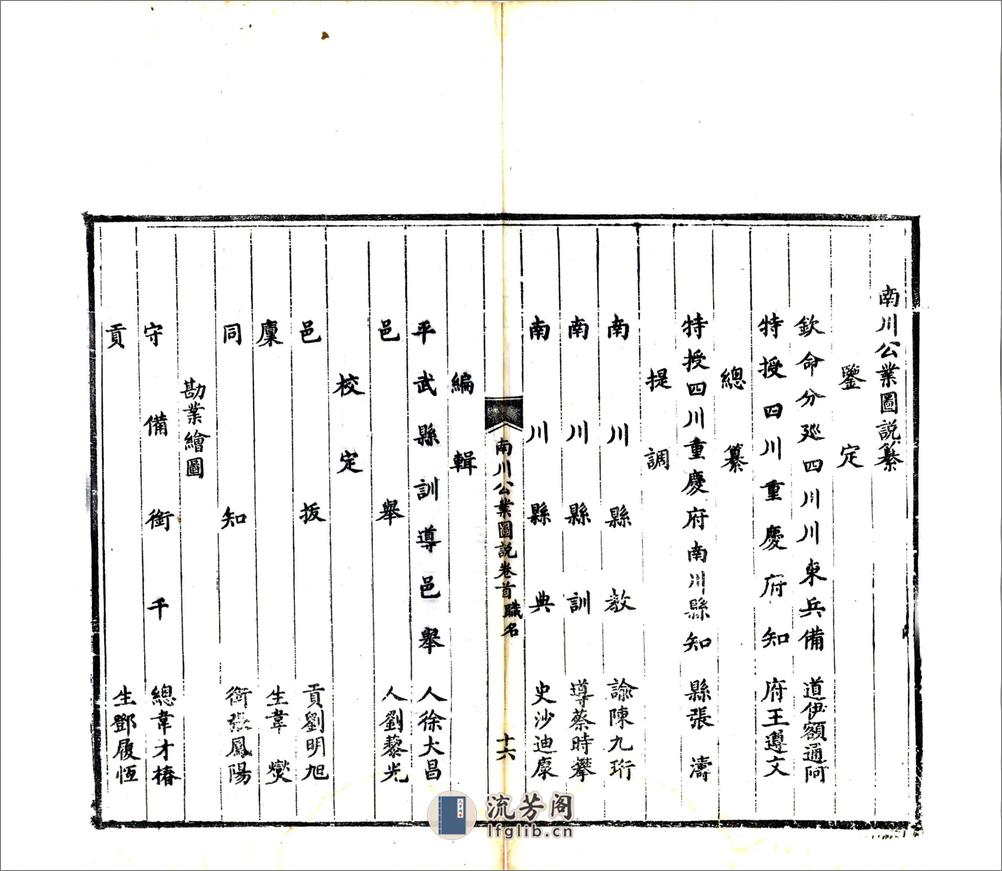 南川公業圖說纂
鑒定
欽命分廵四川川東兵備道伊額通阿
特授四川重慶府知府王遵文
總纂
特授四川重慶府南川縣知縣張濤
提調
南川縣教諭陳九珩
南川縣訓導蔡時攀
南川縣典史沙迪康
南川公業圖說卷首職名
十六
編輯
平武縣訓導邑舉人徐大昌
邑舉人劉藜光
校定
邑拔貢劉明旭
廩生韋燮
同知銜張鳳陽
勘業繪圖
守備銜千總韋才椿
貢生鄧履恆
流芳阁
lfglib.cn